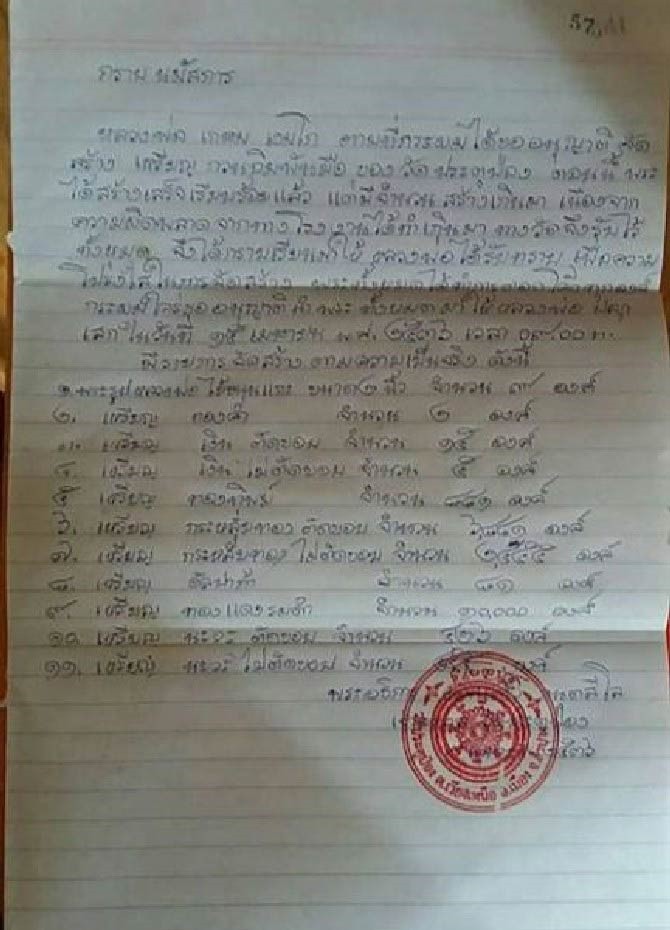 กราบ นมัสการ
หลวงพ่อ เกษม เขมโก ตามที่กระผมได้ขออนุญาติ จัด
สร้าง เหรียญ กวนเสมาหลังเสือ ของวัดประตูป่อง ตอนนี้
ได้สร้างเสร็จเรียบร้อยแล้ว แต่มีจำนวน สร้างเกินมา เนื่องจาก
ความผิดพลาดจากทางโรงงานได้ทำเกินมา ทางวัดจึงรับไว้
ทั้งหมด จึงได้กราบเรียนมาให้ หลวงพ่อ ได้รับทราบ เพื่อความ
โปร่งใสในการจัดสร้าง
กระผมใคร่ขออนุญาติ นำพระทั้งหมดมาให้หลวงพ่อ ปลุก
เสกในวันที่ ๑๕ เมษายน พ.ศ. ๒๕๓๖ เวลา ๐๙.๐๐ น.
มีรายการ จัดสร้าง ตามความเป็นจริง ดังนี้
๑. พระรูปหลวงพ่อ ขนาด ๑ นิ้ว จำนวน ๙ องค์
๒. เหรียญ ทองคำ จำนวน ๒ องค์
๓. เหรียญ เงิน ตัดขอบ จำนวน ๑๕ องค์
๔. เหรียญ เงิน ไม่ตัดขอบ จำนวน ๕ องค์
๕ เหรียญ ทองทิพย์ จำนวน ๔๔๑ องค์
๖. เหรียญ กระหลั่ยทอง ตัดขอบ จำนวน องค์
๗. เหรียญ กระหลั่ยทอง ไม่ตัดขอบ จำนวน องค์
๘. เหรียญ อัลปาก้า จำนวน ๘๑ องค์
๙. เหรียญ ทองแดงรมดำ จำนวน ๑๐,๐๐๐ องค์
๑๐. เหรียญ นะวะ ตัดขอบ จำนวน องค์
๑๑. เหรียญ นะวะ ไม่ตัดขอบ จำนวน องค์
พระอธิการ
วัดประตูป่อง ต.เวียงเหนือ อ.เมือง จ.ลำปาง